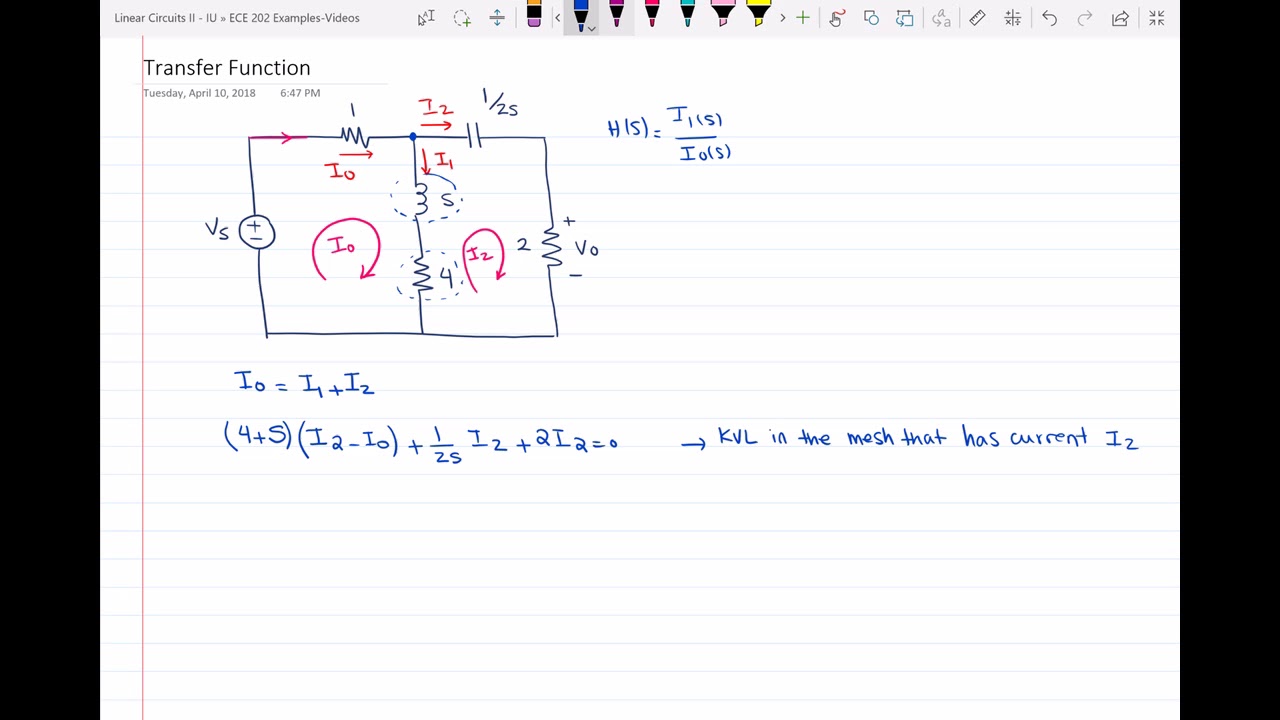 Linear Circuits II - IU » ECE 202 Examples-Videos
Transfer Function
Tuesday, April 10, 2018 6:47 PM
1
I2
1/2S
H(S) = I1(S) / I0(S)
I0
I1
S
Vs
+
−
I0
I2
4
2
+
Vo
−
I0 = I1 + I2
(4+S)(I2−I0) + 1/2S I2 + 2I2 = 0 → KVL in the mesh that has current I2